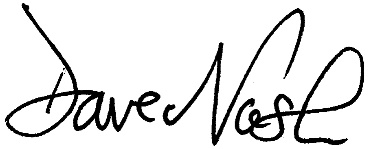 Dave Nash